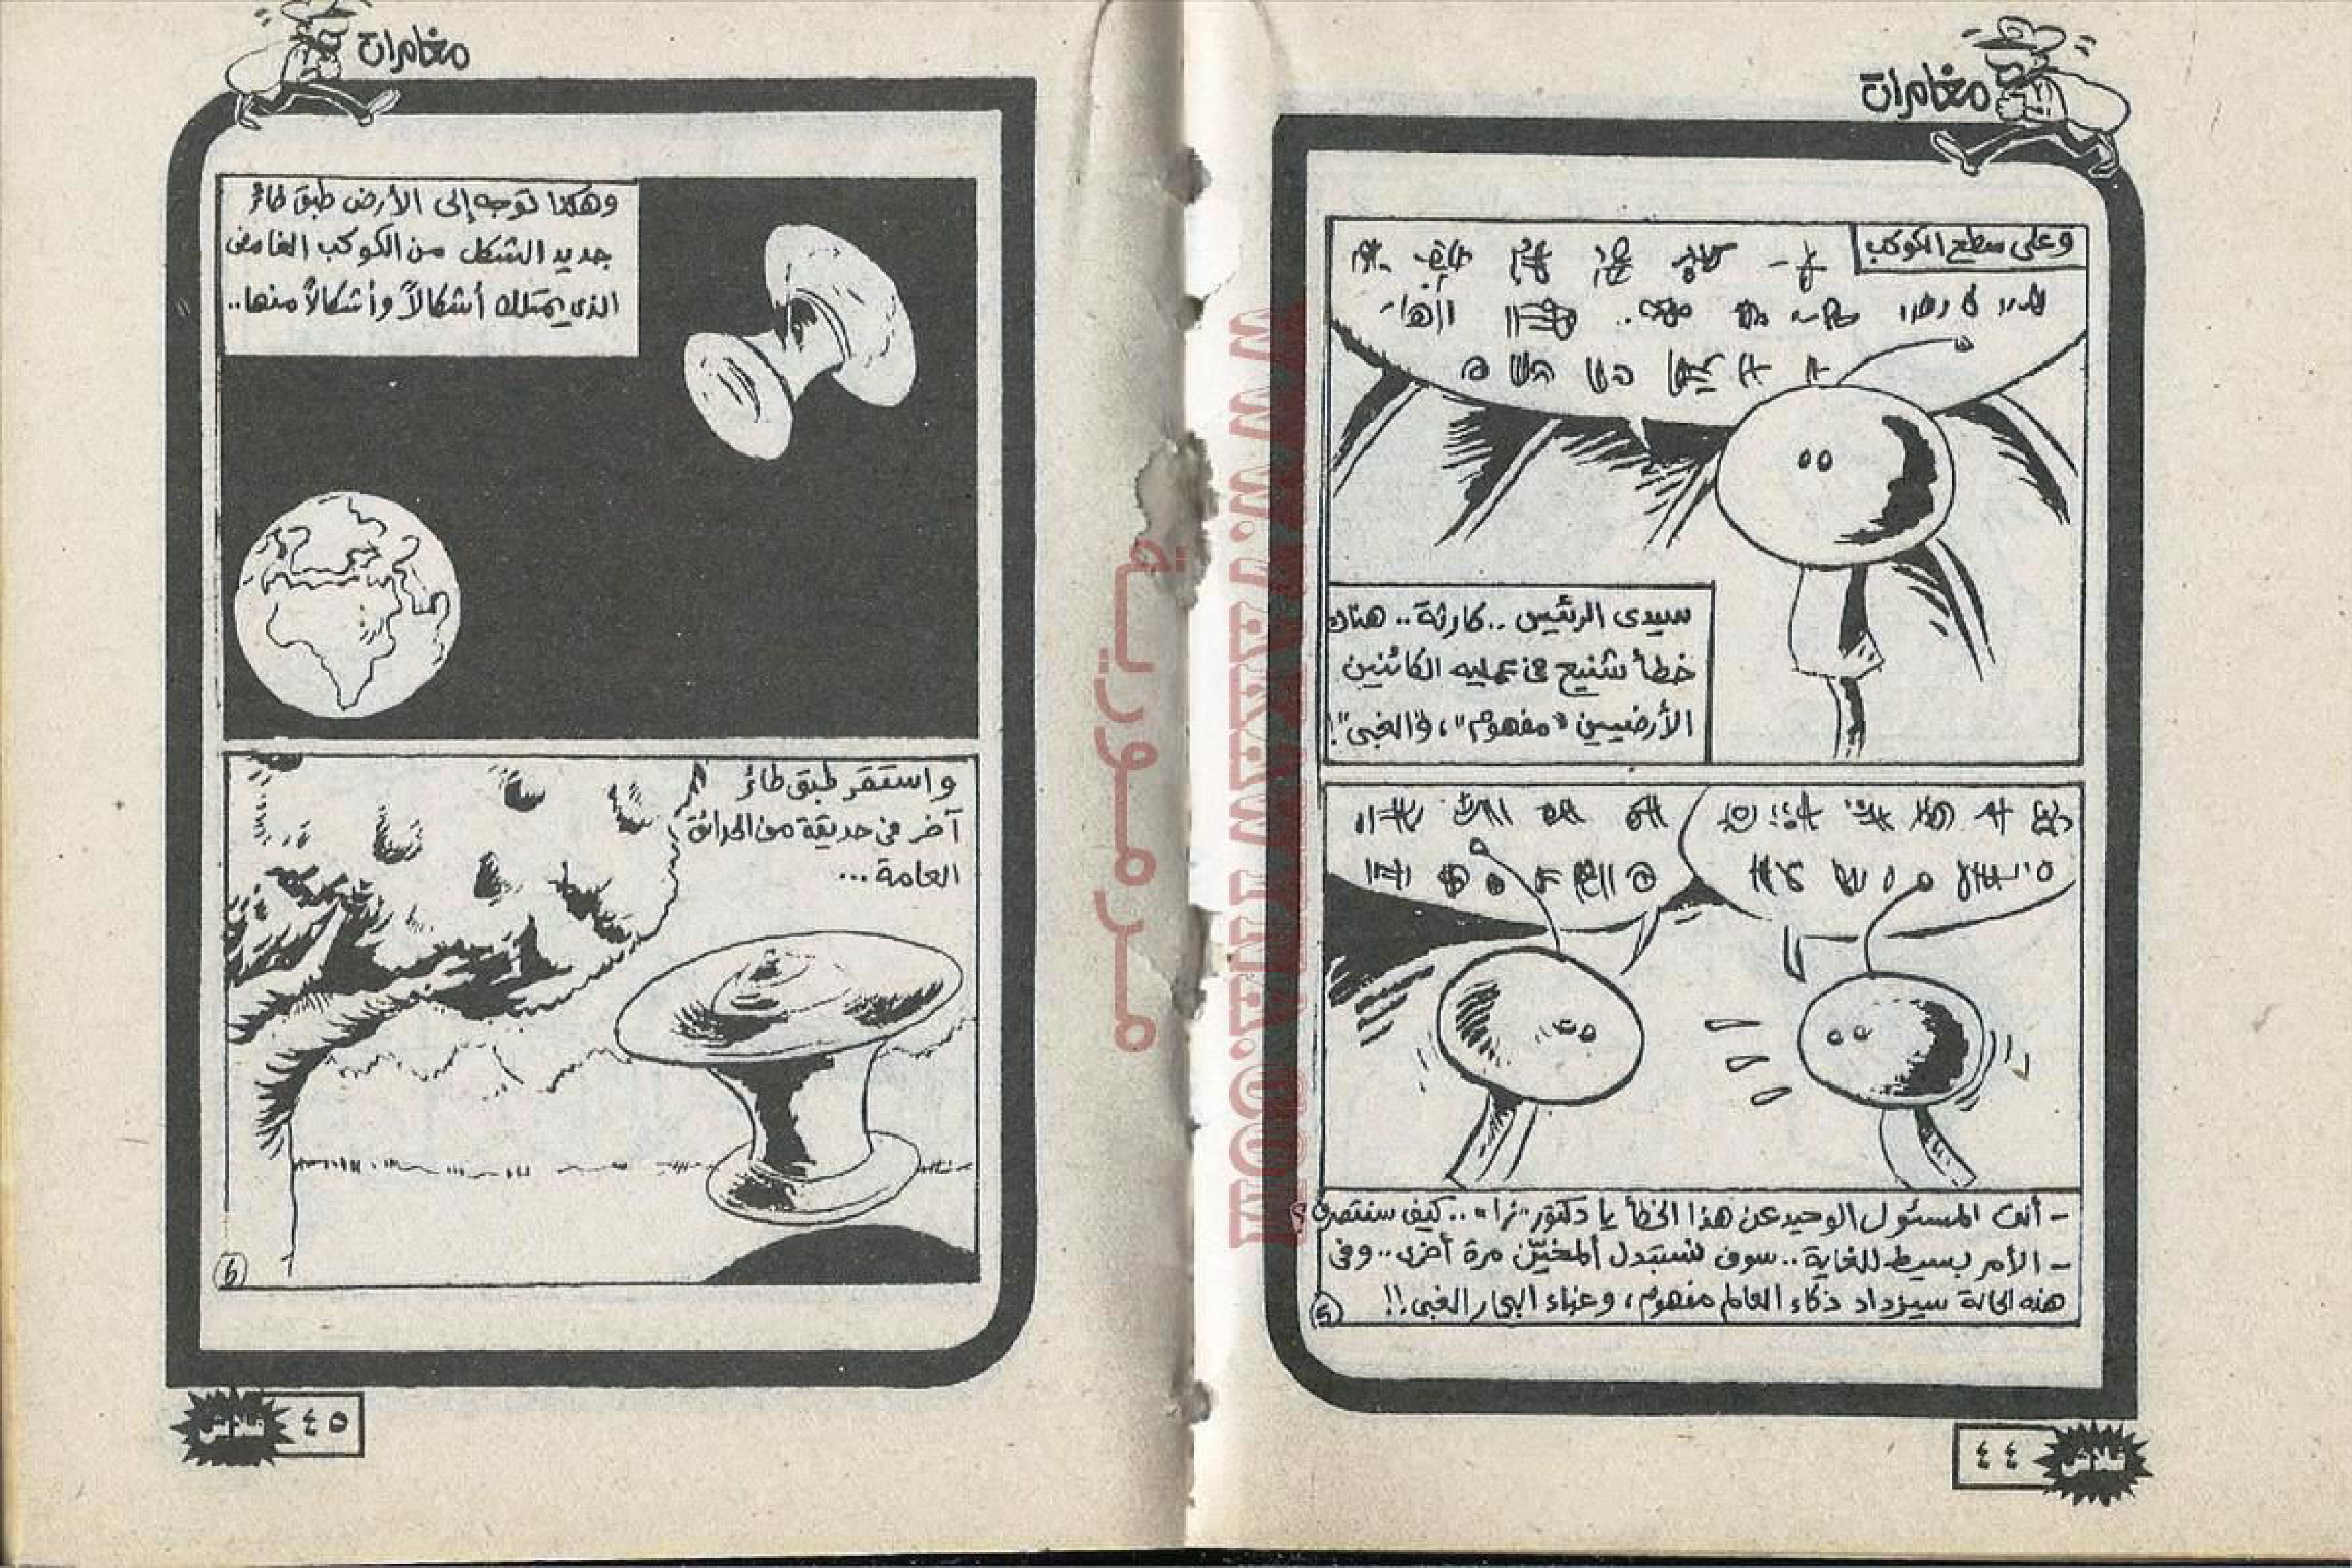 مغامرات
وعلى سطح الكوكب
سيدى الرئيس .. كارثة .. هناك
خطأ شنيع فى عملية الكائنين
الأرضيين "مفهوم"، و"الغبى"!
- أنت المسئول الوحيد عن هذا الخطأ يا دكتور "نرا" .. كيف سنتصرف؟
- الأمر بسيط للغاية .. سوف نستبدل المخيّن مرة أخرى .. وفى
هذه الحالة سيزداد ذكاء العالم مفهوم، وغباء البحار الغبى!!
5
٤٤
فلاش
مغامرات
وهكذا توجه إلى الأرض طبق طائر
جديد الشكل من الكوكب الغامض
الذى يمتلك أشكالاً وأشكالاً منها..
واستقر طبق طائر
آخر فى حديقة من الحدائق
العامة...
6
٤٥
فلاش
مرمورية